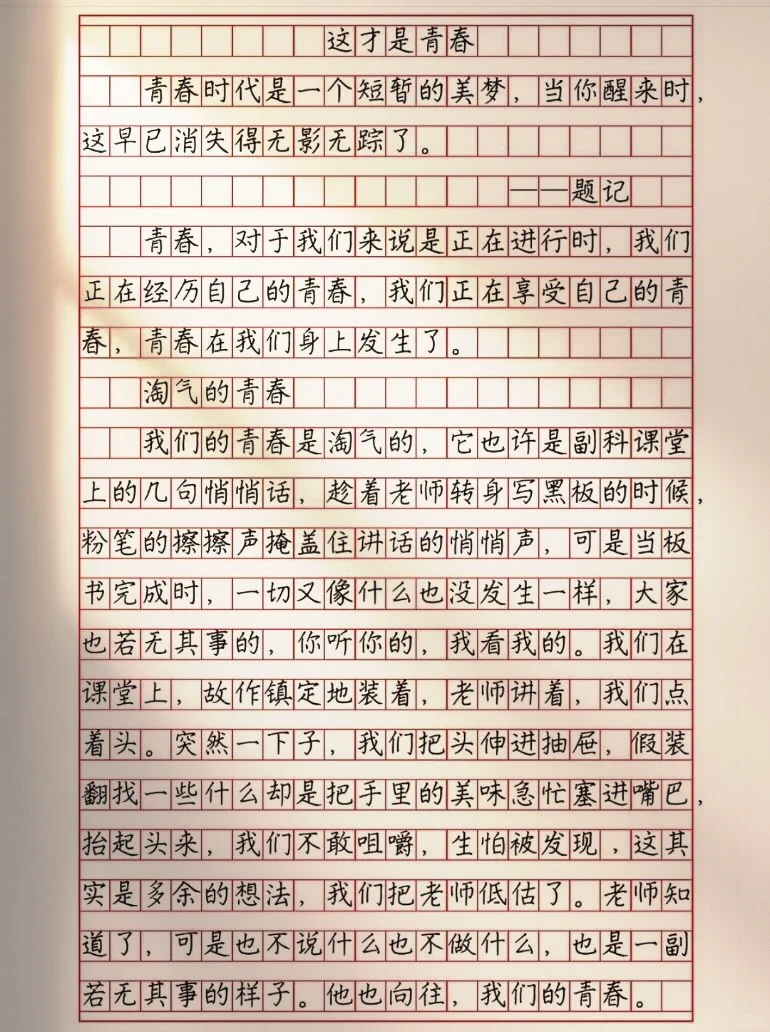 这才是青春
青春时代是一个短暂的美梦，当你醒来时，
这早已消失得无影无踪了。
——题记
青春，对于我们来说是正在进行时，我们
正在经历自己的青春，我们正在享受自己的青
春，青春在我们身上发生了。
淘气的青春
我们的青春是淘气的，它也许是副科课堂
上的几句悄悄话，趁着老师转身写黑板的时候，
粉笔的擦擦声掩盖住讲话的悄悄声，可是当板
书完成时，一切又像什么也没发生一样，大家
也若无其事的，你听你的，我看我的。我们在
课堂上，故作镇定地装着，老师讲着，我们点
着头。突然一下子，我们把头伸进抽屉，假装
翻找一些什么却是把手里的美味急忙塞进嘴巴，
抬起头来，我们不敢咀嚼，生怕被发现，这其
实是多余的想法，我们把老师低估了。老师知
道了，可是也不说什么也不做什么，也是一副
若无其事的样子。他也向往，我们的青春。